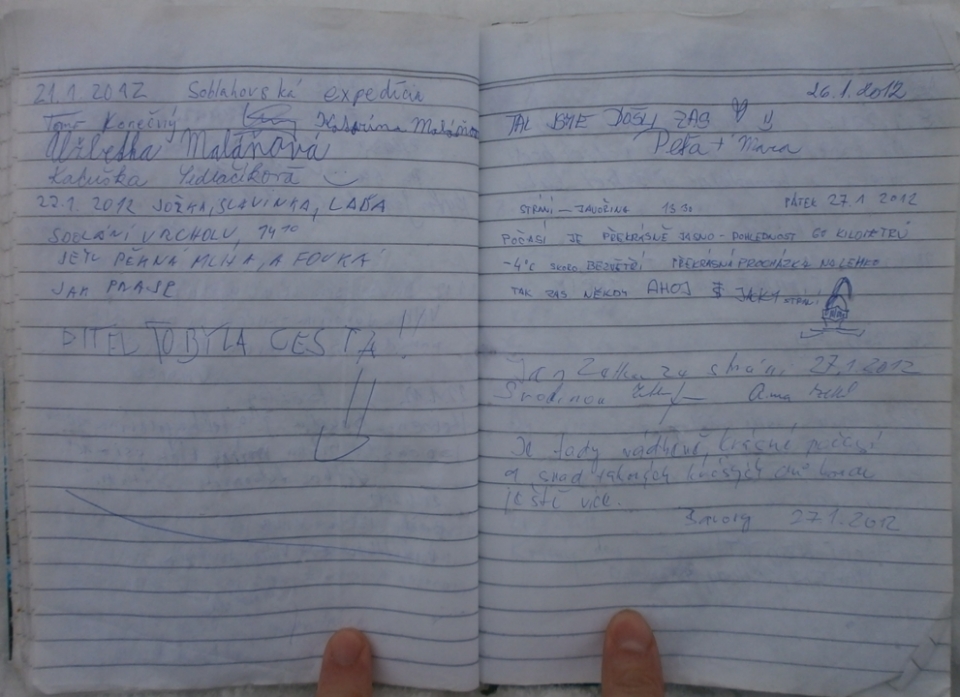 21.1.2012 Soblahovská expedícia
Konečný Katarína
Alžbetka Maláňová
Katuška Sedláčiková
22.1. 2012 JOŽKA, SLAVINKA, LAĎA
VRCHOLU, 14 10
JE TU PĚKNÁ MLHA, A FOUKÁ
JAK PRASE
DITEL TO BYLA CESTA!
26.1.2012
TAK SME DOŠLI ZAS
Peťa +
STRÁNÍ - JAVOŘINA 13 PÁTEK 27.1 2012
POČASÍ JE PŘEKRÁSNĚ JASNO - DOHLEDNOST KILOMETRŮ
-4°C SKORO BEZVĚTŘÍ PŘEKRÁSNÁ PROCHÁZKA NALEHKO
TAK ZAS NĚKDY AHOJ STRÁNÍ
27.1.2012
S rodinou
Je tady nádherně, krásné počasí
a snad takových
ještě více.
27.1.2012